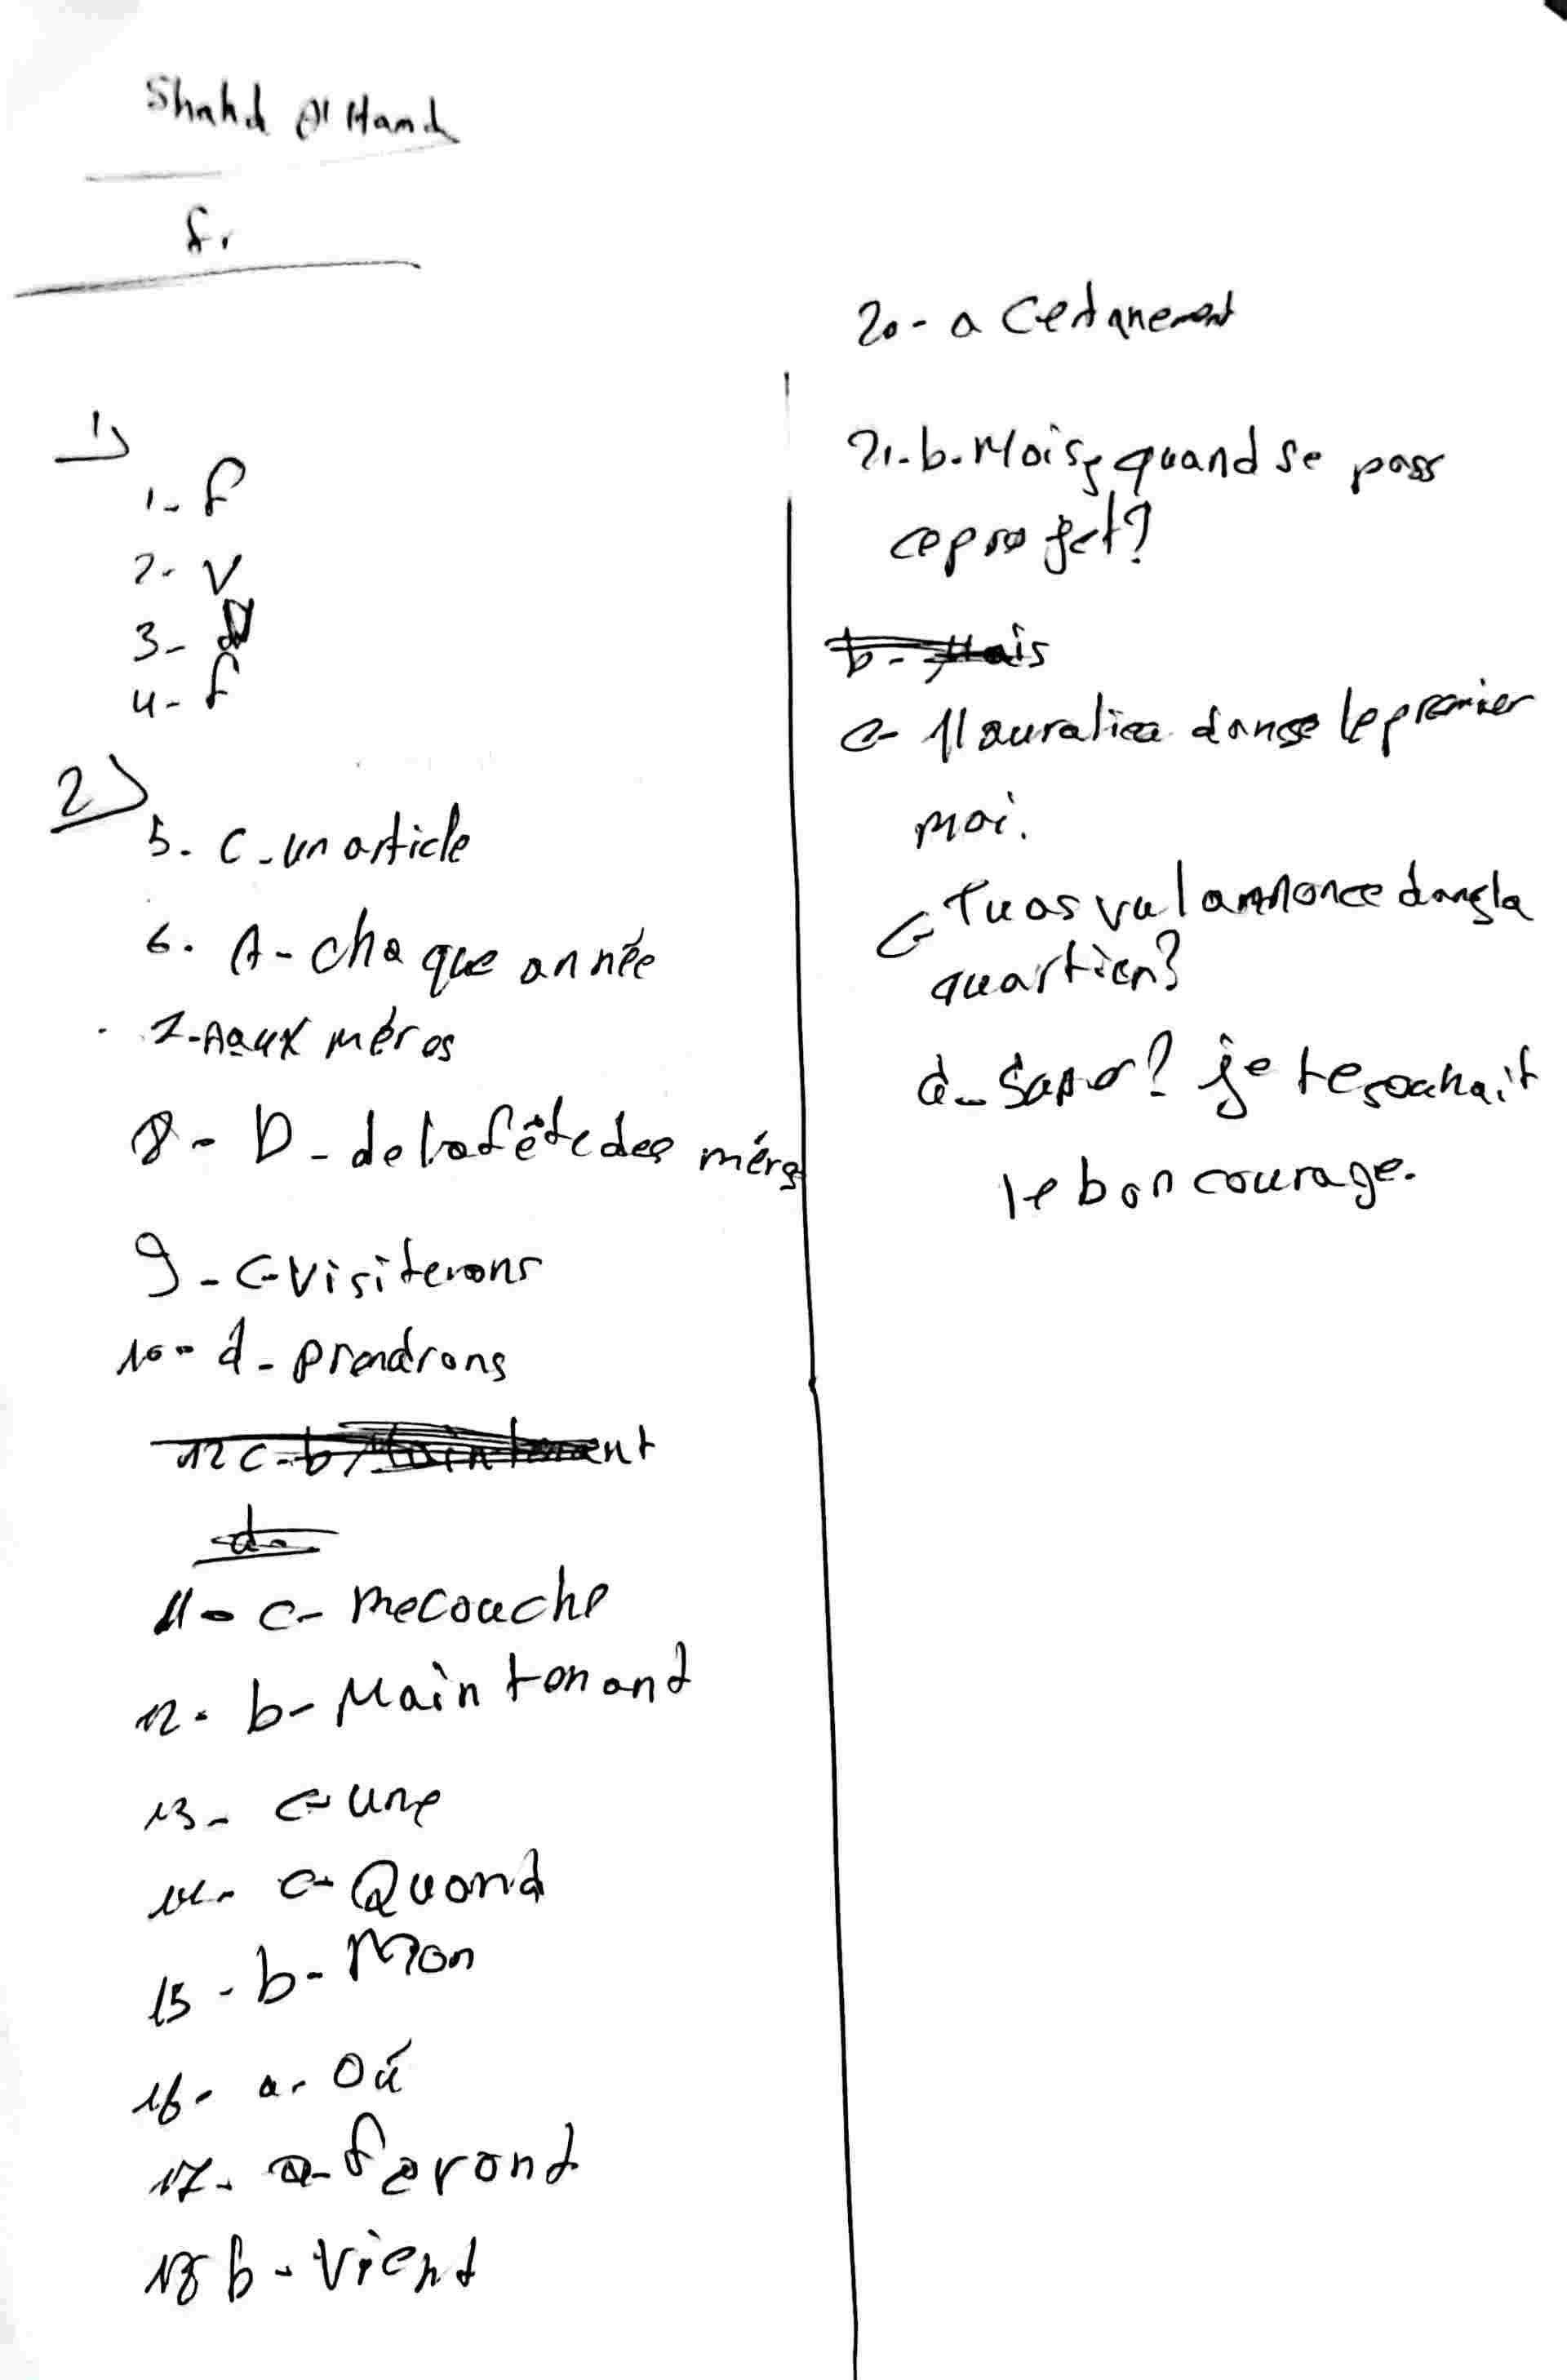 Shahd Al Hamd
fr
1)
1- f
2- V
3- V
4- f
2)
5. C - un article
6. A - cha que année
7- A aux méres
8 - D - de la fête des méres
9 - C- visiterons
10 - d - prendrons
11 - c - me couche
12 - b - Maintenant
13 - c - une
14 - c - Quand
15 - b - Mon
16 - a - Oú
17 - a - feront
18 b - Vient
20 - a Certanement
21. b. Mais, quand se pass
ce projet?
c- Il aura liea dans le premier
moi.
Tu as vu l annonce dans la
quartien?
d- Saper? je te souhait
le bon courage.